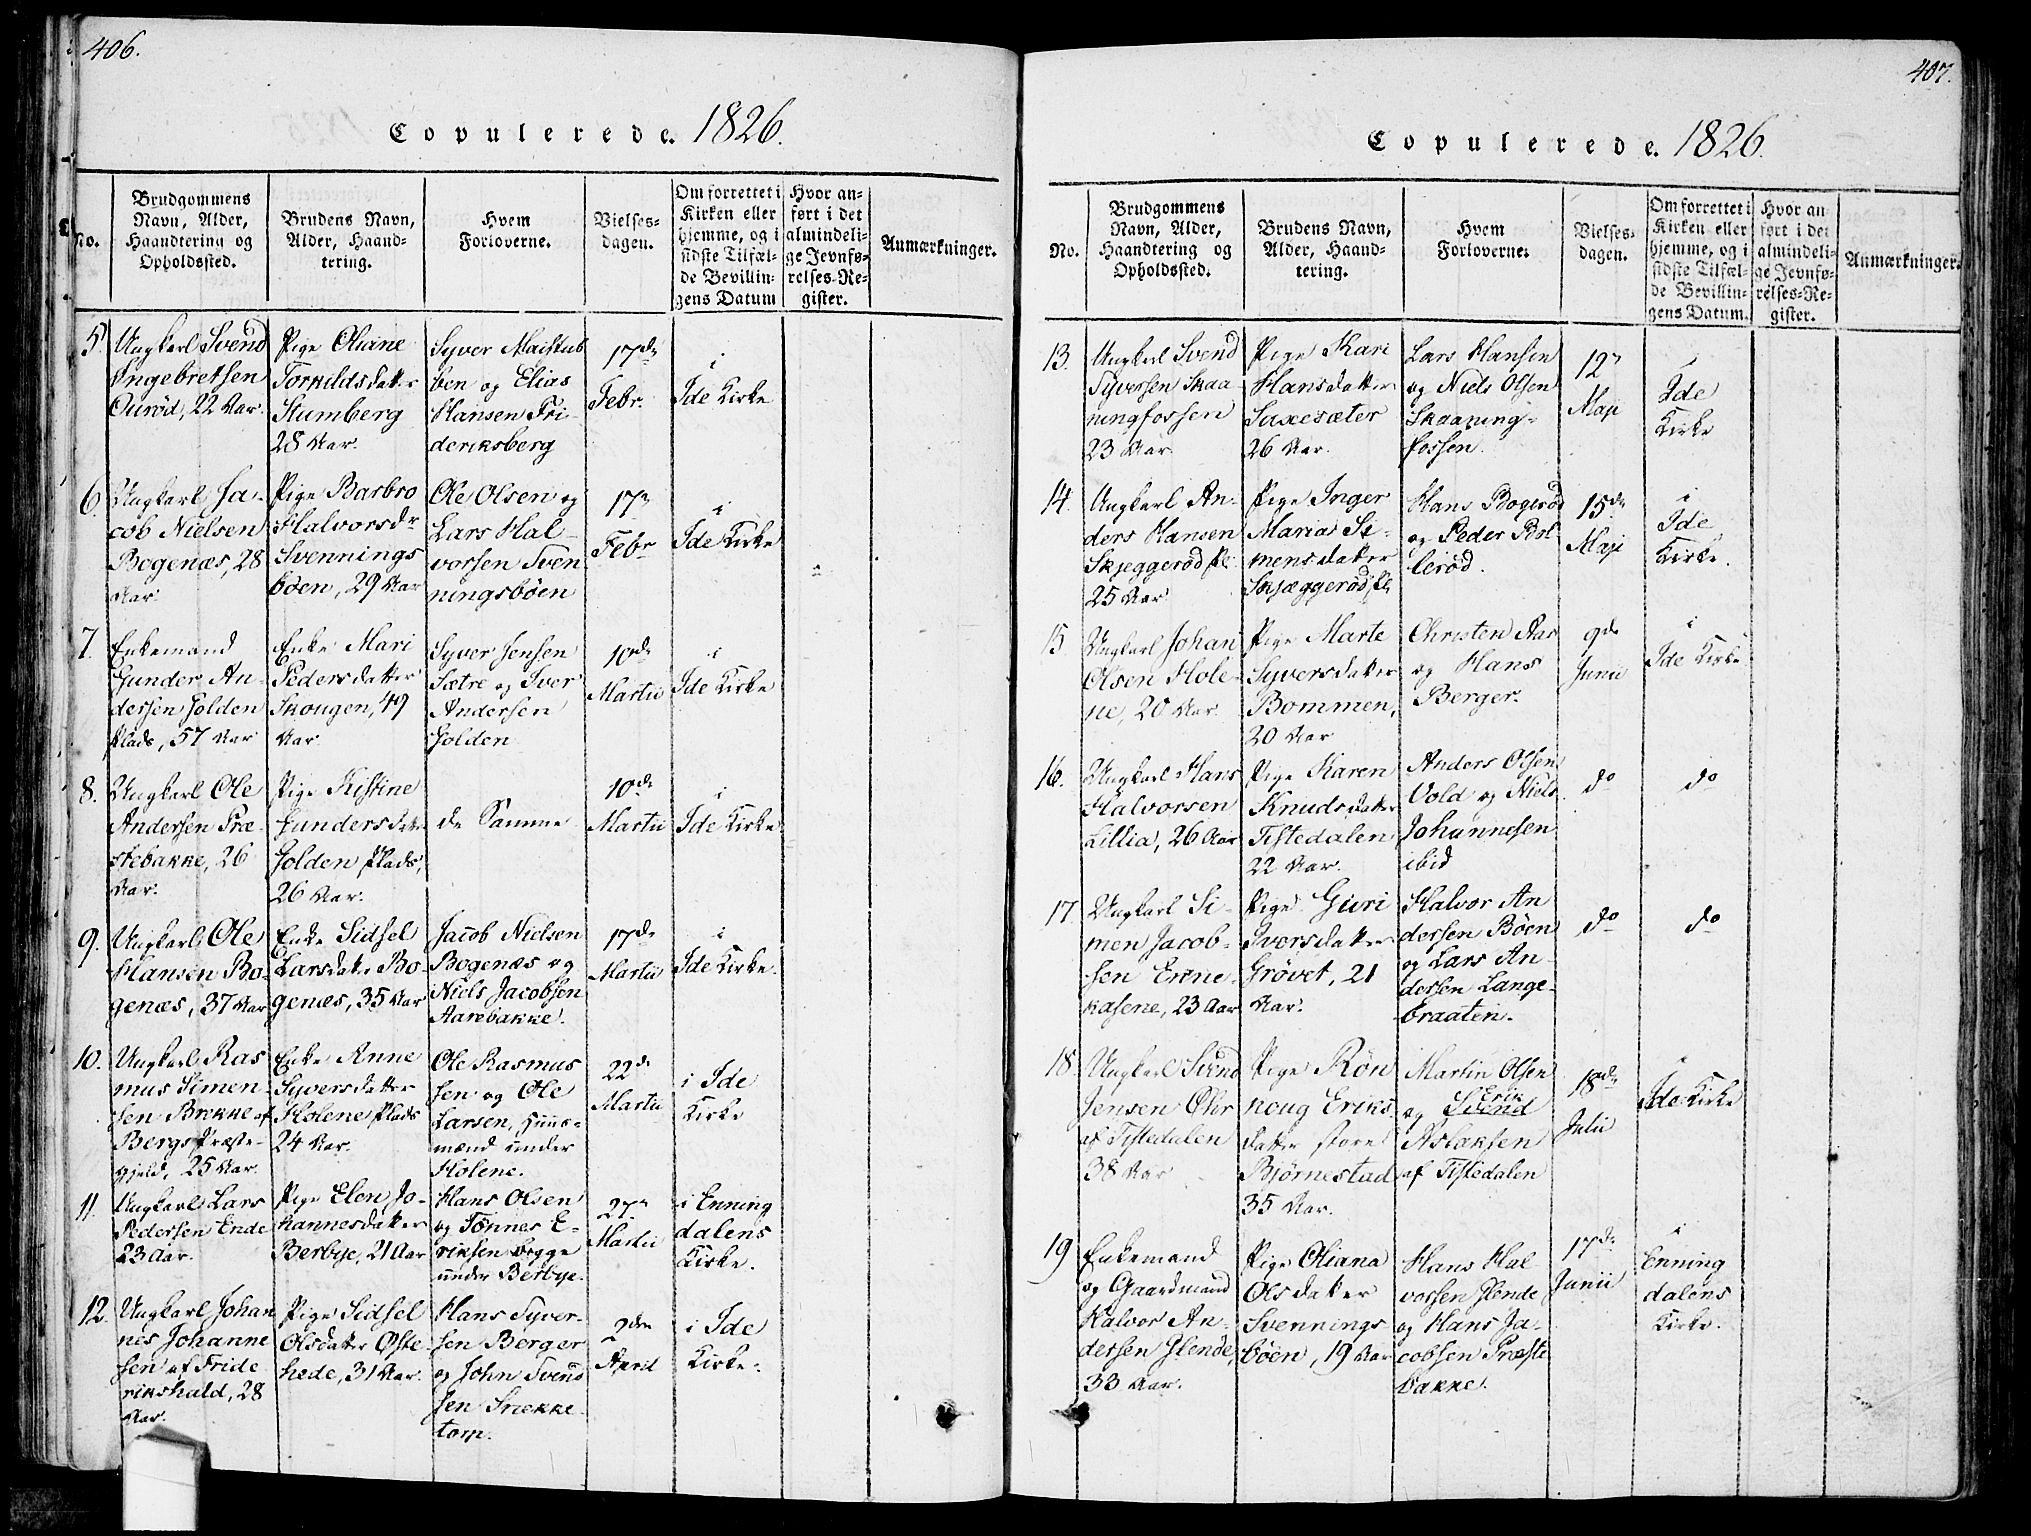 406.
Copulerede. 1826.
No.
Brudgommens
Navn, Alder,
Haandtering og
Opholdssted.
Brudens Navn,
Alder, Haand-
tering.
Hvem
Forloverne.
Vielses-
dagen.
Om forrettet i
Kirken eller
hjemme, og i
sidste Tilfæl-
de Bevillin-
gens Datum
Hvor an-
ført i det
almindeli-
ge Jevnfø-
relses-Re-
gister.
Anmærkninger.
5.
Ungkarl Svend
Ingebretsen
Ourød, 22 Aar.
Pige Oliane
Torkildsdatter
Stumberg
28 Aar.
Syver Maistub
ben og Elias
Hansen Fri-
deriksberg
17de
Febr.
i
Ide Kirke
6.
Ungkarl Ja-
cob Nielsen
Bogenæs, 28
Aar.
Pige Barbro
Halvorsdr
Svennings
böen, 29 Aar
Ole Olsen og
Lars Hal-
vorsen Sven
ningsböen
17de
Febr
i
Ide Kirke
7.
Enkemand
Gunder An-
dersen Holden
Plads, 57 Aar
Enke Mari
Pedersdatter
Skougen, 49
Aar.
Syver Jensen
Sætre og Iver
Andersen
Holden
10de
Martii
i
Ide Kirke
8.
Ungkarl Ole
Andersen Præ-
stebakke, 26
Aar.
Pige Kistine
Gundersdatter
Holden Plads,
26 Aar.
de Samme
10de
Martii
i
Ide Kirke
9.
Ungkarl Ole
Hansen Bo-
genæs, 37 Aar
Enke Sidsel
Larsdatter Bo-
genæs, 35 Aar
Jacob Nielsen
Bogenæs og
Niels Jacobsen
Aarebakke.
17de
Martii
i
Ide Kirke.
10.
Ungkarl Ras
mus Simen-
sen Brekke af
Bergs Præste-
gjeld, 25 Aar.
Enke Anne
Syversdatter
Holene Plads
24 Aar.
Ole Rasmus
sen og Ole
Larsen, Huus-
mænd under
Holene.
22de
Martii
i Ide
Kirke
11.
Ungkarl Lars
Pedersen Ende
23 Aar.
Pige Elen Jo-
hannesdatter
Berbye, 21 Aar
Hans Olsen
og Tönnes E-
riksen begge
under Berbye.
27de
Martii
i Enning
dalens
Kirke.
12.
Ungkarl Johan
nes Johanne
sen af Fride
rikshald, 28
Aar.
Pige Sidsel
Olsdatter Øste
hede, 31 Aar.
Hans Syver-
sen Berger
og John Svend
sen Snekke
torp.
2den
April
i Ide
Kirke.
407.
Copulerede. 1826.
No.
Brudgommens
Navn, Alder,
Haandtering og
Opholdssted.
Brudens Navn,
Alder, Haand-
tering.
Hvem
Forloverne.
Vielses-
dagen.
Om forrettet i
Kirken eller
hjemme, og i
sidste Tilfæl-
de Bevillin-
gens Datum.
Hvor an
ført i det
almindeli-
ge Jevnfø-
relses-Re-
gister.
Anmærkninger.
13.
Ungkarl Svend
Syversen Skaa
ningfossen
23 Aar.
Pige Kari
Hansdatter
Saxesæter
26 Aar.
Lars Hansen
og Niels Olsen
Skaaning-
fossen.
12te
Maji
i
Ide
Kirke
14.
Ungkarl An-
ders Hansen
Skjeggerød Pl
25 Aar
Pige Inger
Maria Si-
mensdatter
Skjæggerød Pl
Hans Bogerød
og Peder Böl
lerød.
15de
Maji
i
Ide
Kirke.
15.
Ungkarl Johan
Olsen Hole-
ne, 20 Aar.
Pige Marte
Syversdatter
Bommen,
20 Aar
Christen Aar
og Hans
Berger.
9de
Junii
i
Ide Kirke
16.
Ungkarl Hans
Halvorsen
Lillia, 26 Aar
Pige Karen
Knudsdatter
Tistedalen
22 Aar.
Anders Olsen
Vold og Niels
Johannesen
ibid
do
do
17
Ungkarl Si-
men Jacob-
sen Enne-
kasene, 23 Aar
Pige Guri
Iversdatter
Grövet, 21
Aar.
Halvor An
dersen Böen
og Lars An-
dersen Lange-
braaten.
do
do
18.
Ungkarl Svend
Jensen Øhr
af Tistedalen
38 Aar
Pige Rön
noug Eriks
datter store
Björnestad
35 Aar.
Martin Olsen
Erik
og Svend
Aslaksen
af Tistedalen
18de
Julii
i
Ide Kirke
19
Enkemand
og Gaardmand
Halvor An-
dersen Hende,
33 Aar.
Pige Oliana
Olsdatter
Svennings
böen, 19 Aar
Hans Hal
vorsen Hende
og Hans Ja-
cobsen Præste
bakke.
17de
Junii
i
Enning
dalens
Kirke.